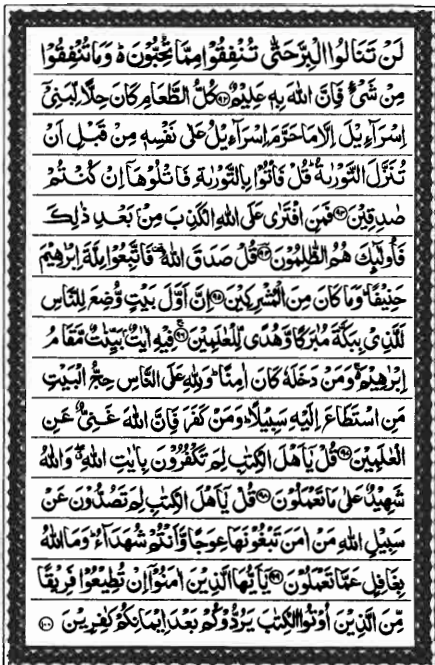 لَنْ تَنَالُوا الْبِرَّ حَتّٰى تُنْفِقُوْا مِمَّا تُحِبُّوْنَ ؕ وَمَا تُنْفِقُوْا
مِنْ شَیْءٍ فَاِنَّ اللّٰهَ بِهٖ عَلِيْمٌ ﴿۹۲﴾ كُلُّ الطَّعَامِ كَانَ حِلًّا لِّبَنِیْۤ
اِسْرَآءِیْلَ اِلَّا مَا حَرَّمَ اِسْرَآءِیْلُ عَلٰى نَفْسِهٖ مِنْ قَبْلِ اَنْ
تُنَزَّلَ التَّوْرٰىةُ ؕ قُلْ فَاْتُوْا بِالتَّوْرٰىةِ فَاتْلُوْهَاۤ اِنْ كُنْتُمْ
صٰدِقِيْنَ ﴿۹۳﴾ فَمَنِ افْتَرٰى عَلَى اللّٰهِ الْكَذِبَ مِنْۢ بَعْدِ ذٰلِكَ
فَاُولٰٓئِكَ هُمُ الظّٰلِمُوْنَ ﴿۹۴﴾ قُلْ صَدَقَ اللّٰهُ ۫ فَاتَّبِعُوْا مِلَّةَ اِبْرٰهِيْمَ
حَنِيْفًا ؕ وَمَا كَانَ مِنَ الْمُشْرِكِيْنَ ﴿۹۵﴾ اِنَّ اَوَّلَ بَيْتٍ وُّضِعَ لِلنَّاسِ
لَلَّذِیْ بِبَكَّةَ مُبٰرَكًا وَّهُدًى لِّلْعٰلَمِيْنَ ﴿۹۶﴾ فِيْهِ اٰيٰتٌۢ بَيِّنٰتٌ مَّقَامُ
اِبْرٰهِيْمَ ۬ وَمَنْ دَخَلَهٗ كَانَ اٰمِنًا ؕ وَلِلّٰهِ عَلَى النَّاسِ حِجُّ الْبَيْتِ
مَنِ اسْتَطَاعَ اِلَيْهِ سَبِيْلًا ؕ وَمَنْ كَفَرَ فَاِنَّ اللّٰهَ غَنِیٌّ عَنِ
الْعٰلَمِيْنَ ﴿۹۷﴾ قُلْ يٰۤاَهْلَ الْكِتٰبِ لِمَ تَكْفُرُوْنَ بِاٰيٰتِ اللّٰهِ ۖ وَاللّٰهُ
شَهِيْدٌ عَلٰى مَا تَعْمَلُوْنَ ﴿۹۸﴾ قُلْ يٰۤاَهْلَ الْكِتٰبِ لِمَ تَصُدُّوْنَ عَنْ
سَبِيْلِ اللّٰهِ مَنْ اٰمَنَ تَبْغُوْنَهَا عِوَجًا وَّاَنْتُمْ شُهَدَآءُ ؕ وَمَا اللّٰهُ
بِغَافِلٍ عَمَّا تَعْمَلُوْنَ ﴿۹۹﴾ يٰۤاَيُّهَا الَّذِيْنَ اٰمَنُوْۤا اِنْ تُطِيْعُوْا فَرِيْقًا
مِّنَ الَّذِيْنَ اُوْتُوا الْكِتٰبَ يَرُدُّوْكُمْ بَعْدَ اِيْمَانِكُمْ كٰفِرِيْنَ ﴿۱۰۰﴾